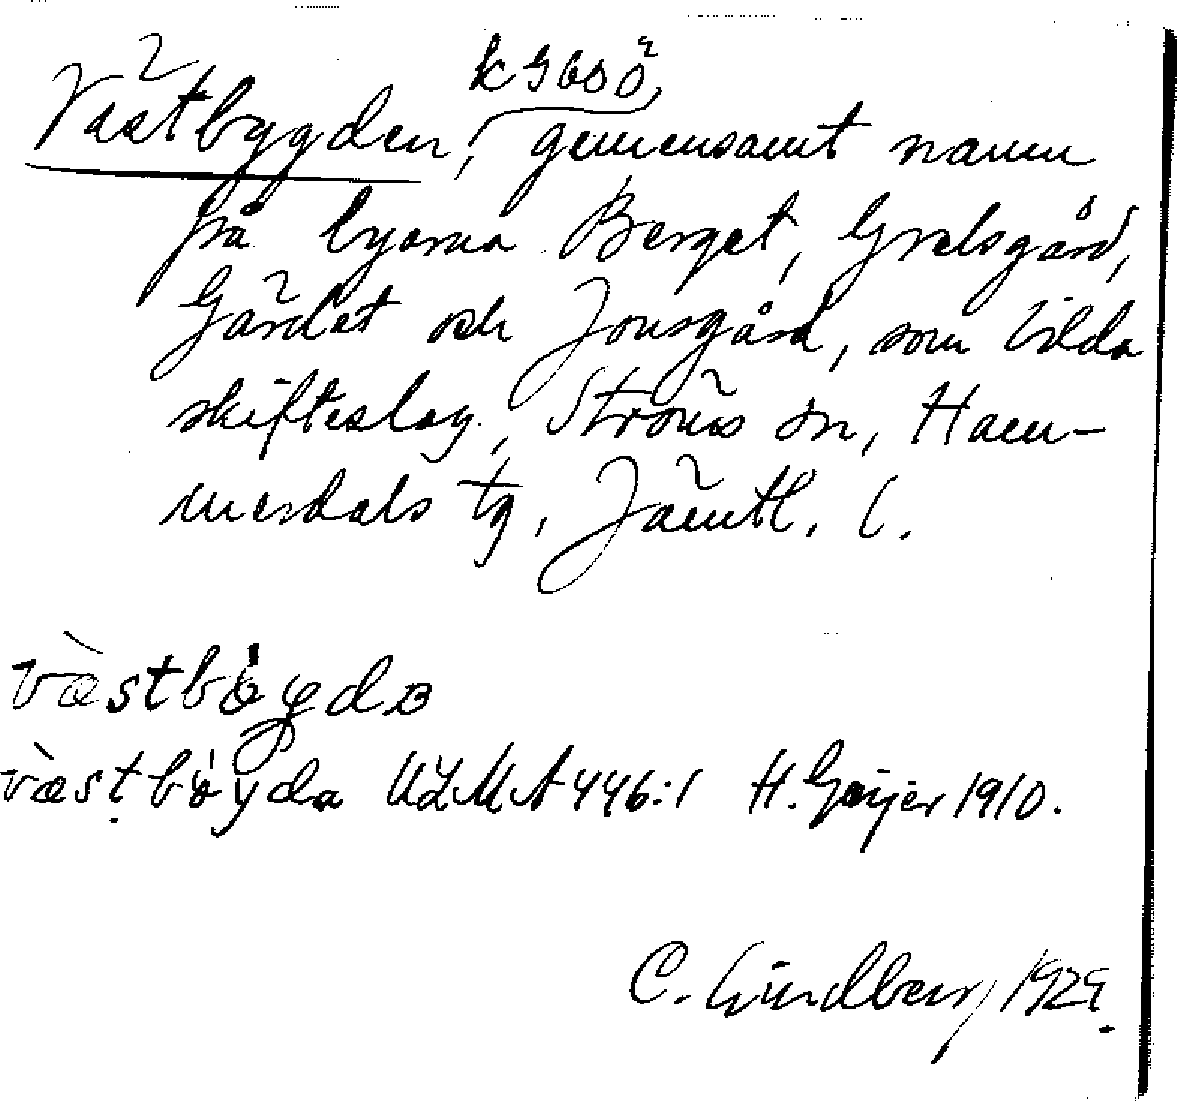 k 9 b s ö,
Västbygden, gemensamt namn
på byarna Berget, Grelsgård,
Gärdet och Jonsgård, som bilda
skifteslag, Ströms sn, Ham-
merdals tg, Jämtl. l.
væstbøyda
væstbøyda ULMA 446:1 H. Geijer 1910.
C. Lindberg 1929.